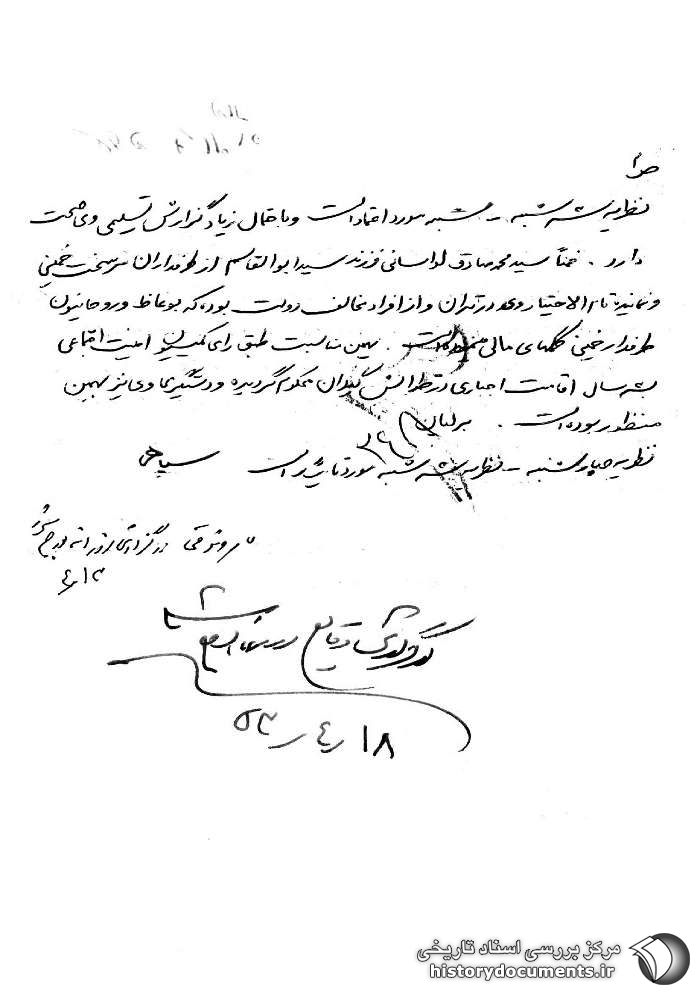 ص ۲
نظریه سه شنبه - شنبه مورد اعتماد است و باحتمال زیاد گزارش تسلیمی وی صحت
دارد. ضمناً سید محمد صادق لواسانی فرزند سید ابوالقاسم از طرفداران سرسخت خمینی
و نماینده تام الاختیار وی در تهران و از افراد مخالف دولت بوده که بوعاظ و روحانیون
طرفدار خمینی کمکهای مالی است. بهمین مناسبت طبق رای کمیسیون امنیت اجتماعی
بسه سال اقامت اجباری در محکوم گردیده و دستگیری وی نیز بهمین
منظور بوده است.
نظریه چهارشنبه - نظریه سه شنبه مورد تایید است.
در گزارش روزانه درج
۴
در گزارش وقایع
۱۸ ر ۴ ر ۵۳
مرکز بررسی اسناد تاریخی
historydocuments.ir